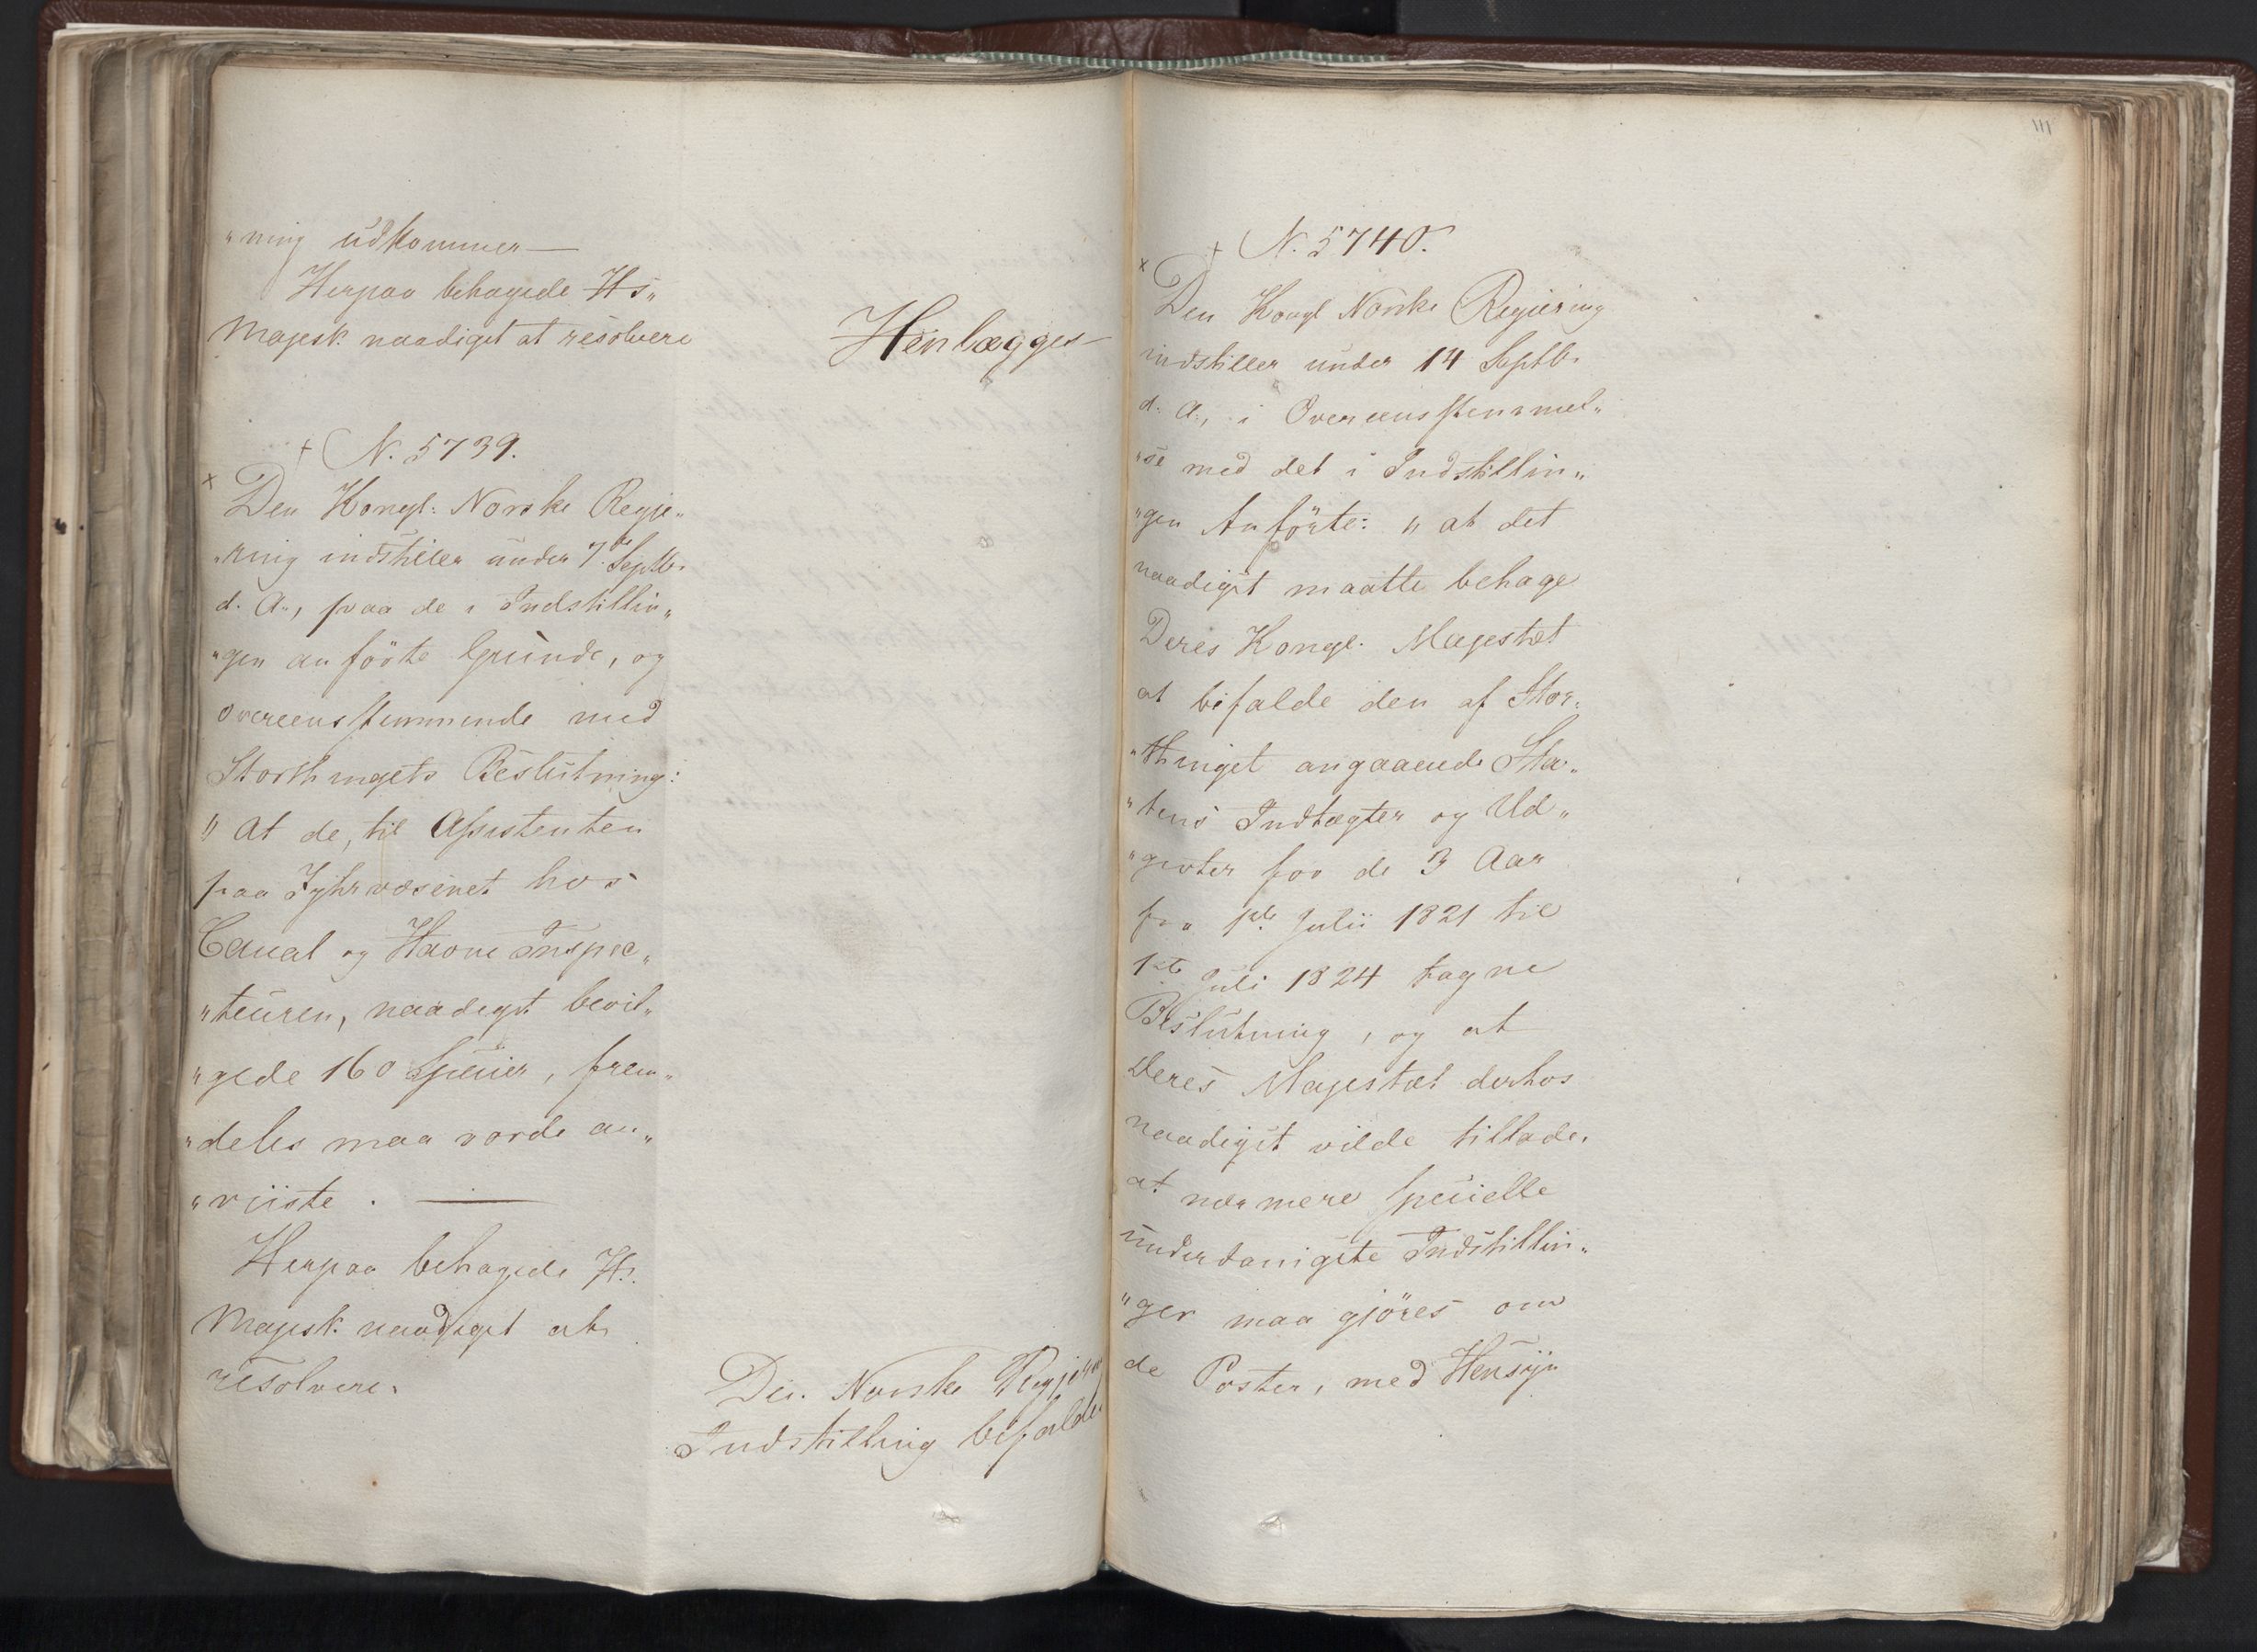 „ning udkommer —
Herpaa behagede Hs„
Majest. naadigst at resolvere
Henlægges
+ N. 5739.
x
Den Kongl: Norske Regje„
„ring indstiller under 7de Septbr
d. A., paa de i Indstillin„
„gen anförte Grunde, og
overeensstemmende med
Storthingets Beslutning:
„ at de, til Assistenten
paa Fyhrvæsenet hos
Canal og Havne Inspec„
„teuren, naadigst bevil„
„gede 160 Specier, frem„
„deles maa vorde an„
„viiste . —
Herpaa behagede Hs.
Majest. naadigst at
resolvere.
Den Norske Regjerings
Indstilling bifaldes
111
+ N. 5740.
x
Den Kongl Norske Regjering
indstiller under 14 Septbr
d. A., i Overeensstemmel„
„se med det i Indstillin„
„gen Anförte: „ at det
naadigst maatte behage
Deres Kongl. Majestæt
at bifalde den af Stor„
„thinget angaaende Sta„
„tens Indtægter og Ud„
„givter for de 3 Aar
fra 1ste Julii 1821 til
1ste Juli 1824 tagne
Beslutning, og at
Deres Majestæt derhos
naadigst vilde tillade,
at nærmere specielle
underdanigste Indstillin„
„ger maa gjöres om
de Poster, med Hensyn